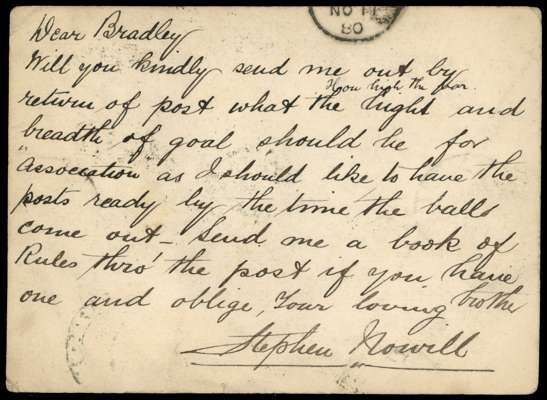 NO 11
80
Dear Bradley
Will you kindly send me out by
How high the bar.
return of post what the hight and
breadth of goal should be for
"Association" as I should like to have the
posts ready by the time the balls
come out – Send me a book of
Rules thro' the post if you have
one and oblige, Your loving brother
Stephen Nowill